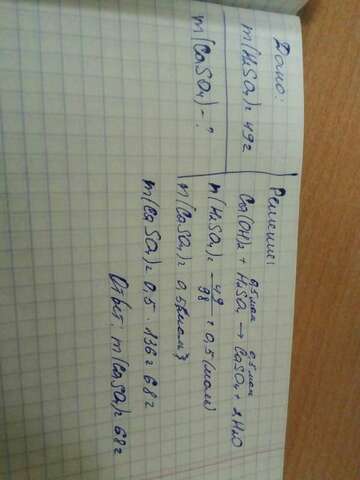 Дано:
m(H2SO4)=49г
m(CaSO4)-?
Решение:
0,5моль 0,5моль
Ca(OH)2 + H2SO4 → CaSO4 + 2H2O
n(H2SO4)= 49/98 = 0,5(моль)
n(CaSO4)= 0,5(моль)
m(CaSO4)= 0,5 · 136 = 68г
Ответ: m(CaSO4)= 68г